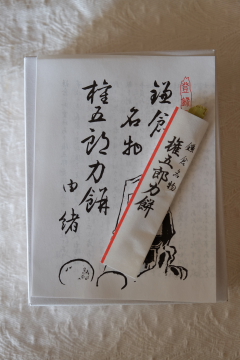 鎌倉
名物
権五郎力餅
由緒
登録
鎌倉名物
権五郎力餅